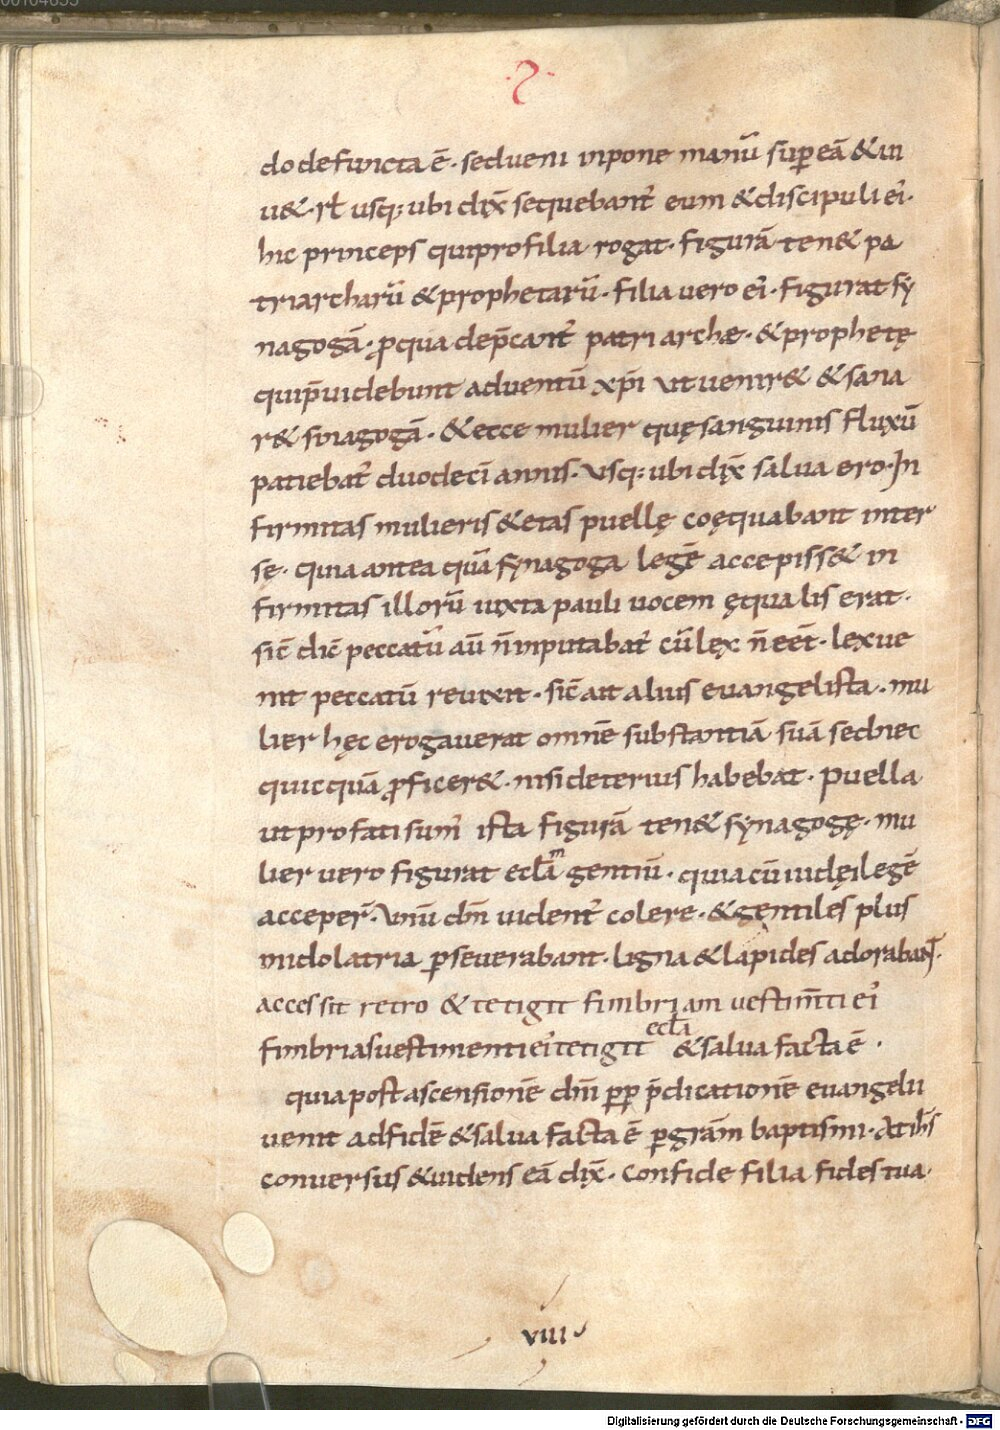 do defuncta ē· sed ueni inpone manū sup eā & ui
u&· rł usq; ubi dix̄ sequebant̄ eum & discipuli ei᾿·
hic princeps qui pro filia rogat· figurā ten& pa
triarcharū & prophetarū· filia uero ei᾿· figurat sy
nagogā· ꝓ qua dep̄cant̄ patriarchæ· & prophetę
qui p̄uidebunt aduentū xp̄i ut uenir& & sana
r& sinagogā· & ecce mulier quę sanguinis fluxū
patiebat̄ duodecī annis· usq; ubi dix̄ salua ero· In
firmitas mulieris & etas puellę coęquabant inter
se· quia antea quā synagoga legē accepiss& in
firmitas illorū iuxta pauli uocem ęqualis erat·
sic̄ dic̄ peccatū aū n̄ inputabat̄ cū lex n̄ eēt· lex ue
nit peccatū reuixit· sic̄ ait alius euangelista· mu
lier hęc erogauerat omnē substantiā suā sed nec
quicquā ꝓficer&· nisi deterius habebat· Puella
ut profati sum᾿ ista figurā ten& synagogę· mu
lier uero figurat eccłam gentiū· quia cū iudęi legē
acceper̄· unū dn̄m uident̄ colere· & gentiles plus
in idolatria ꝑseuerabant· ligna & lapides adorabant·
accessit retro & tetigit fimbriam uestim̄ti ei᾿
eccła
fimbrias uestimenti ei᾿ tetigit & salua facta ē ·
quia post ascensionē dn̄i ꝑ p̄dicationē euangelii
uenit ad fidē & salua facta ē ꝑ gr̄am baptismi· At ih̄s
conuersus & uidens eā dix̄· Confide filia fides tua·
viii
Digitalisierung gefördert durch die Deutsche Forschungsgemeinschaft - DFG